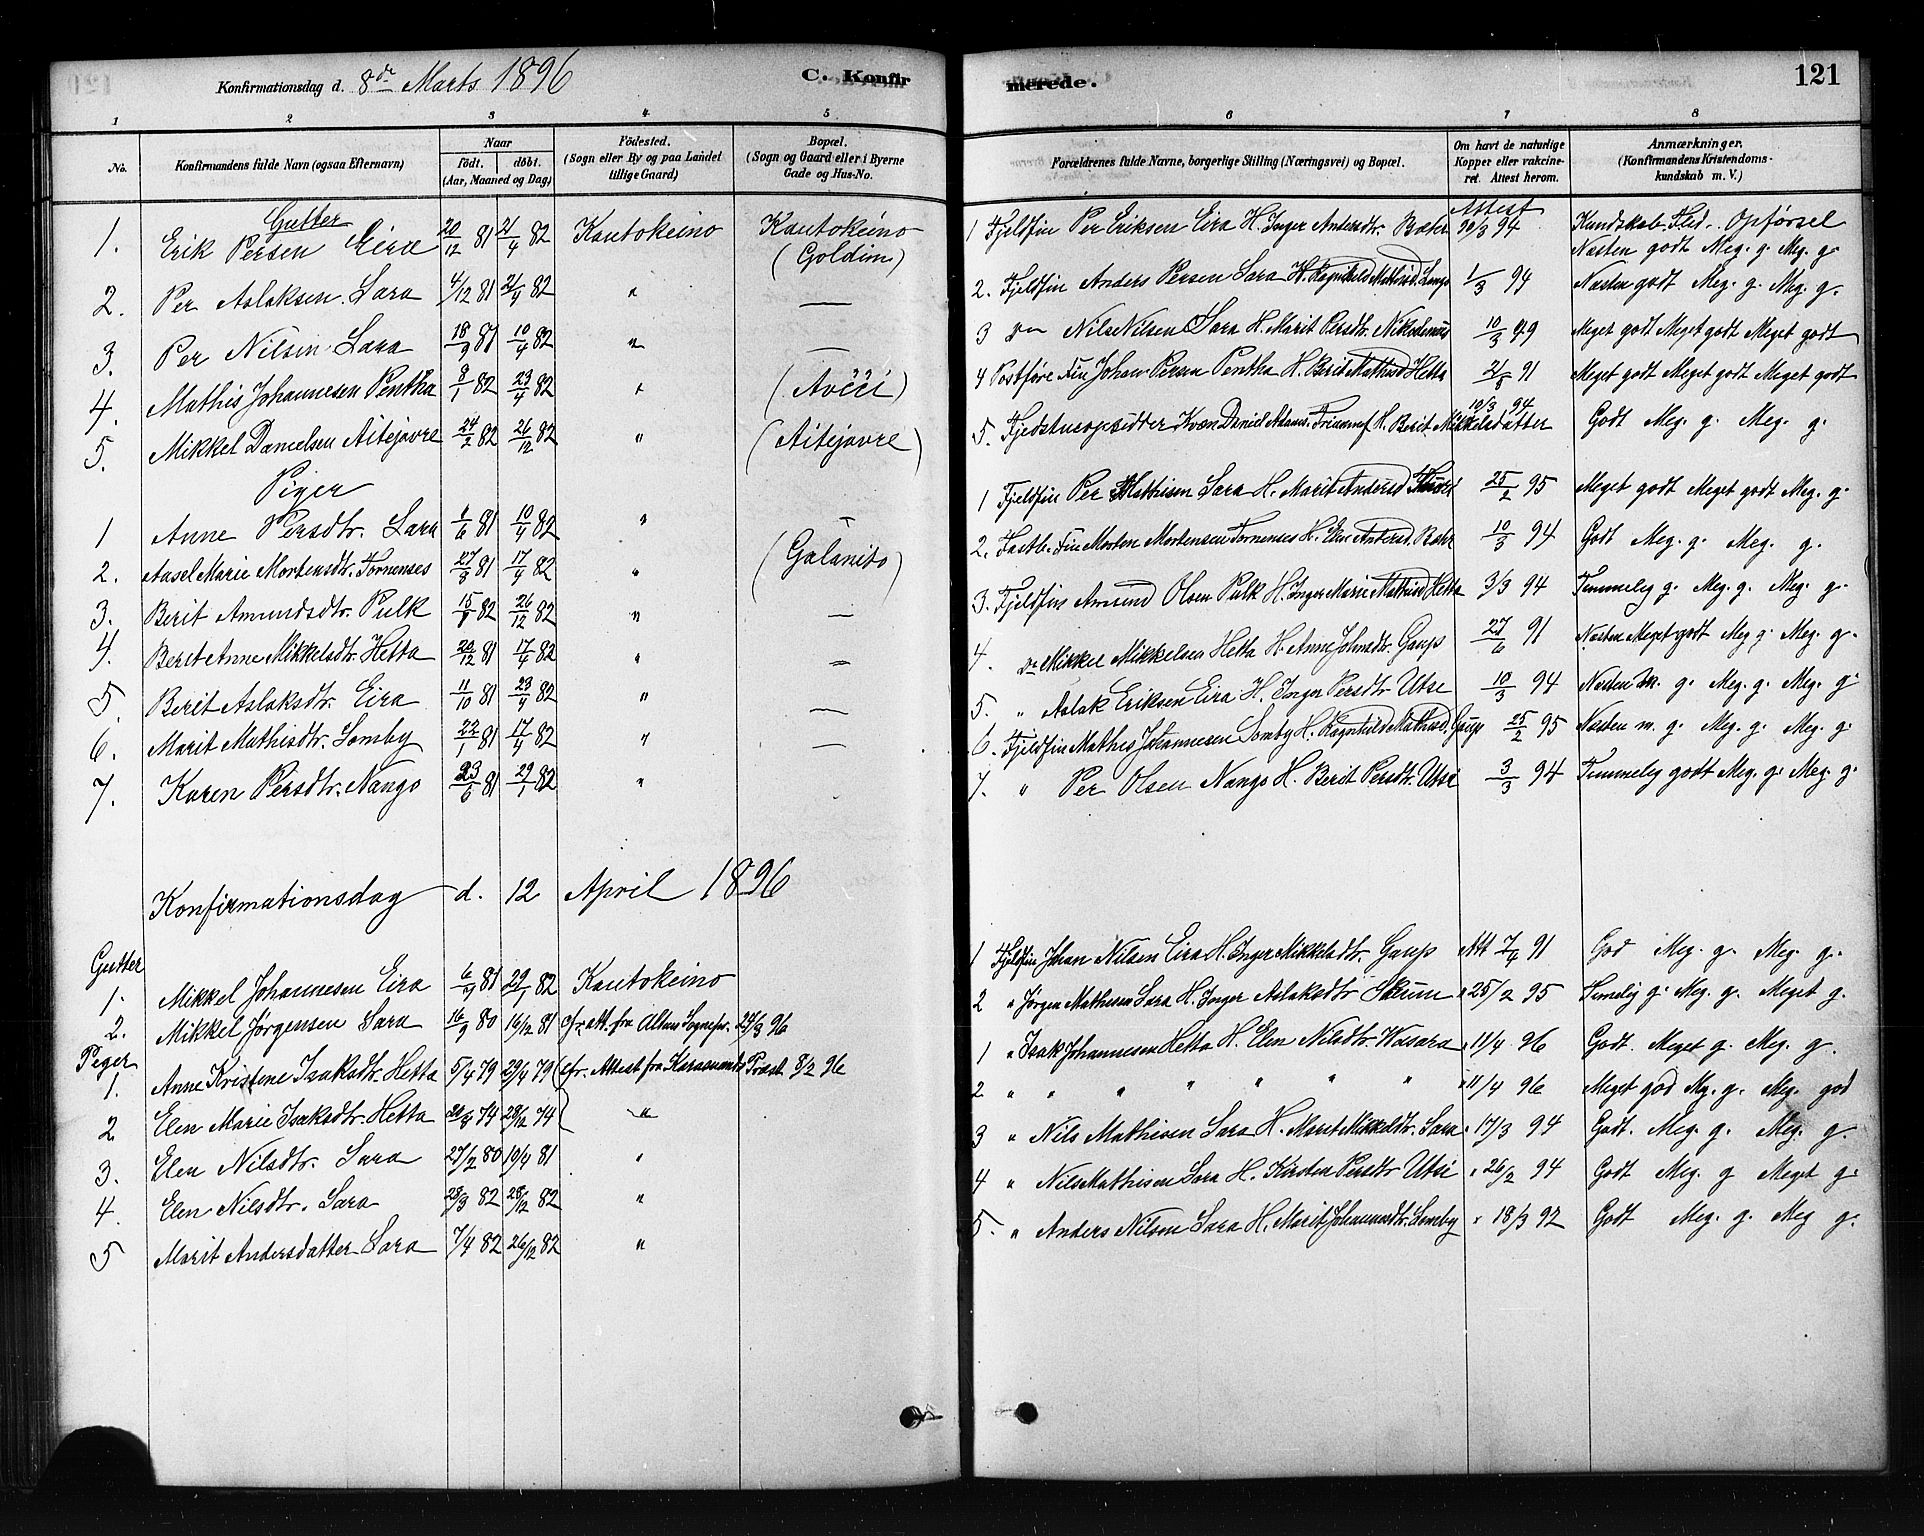 Konfirmationsdag d. 8de Marts 1896 C. Konfir
1 2 3 4 5
No. Konfirmandens fulde Navn (ogsaa Efternavn) Naar født. døbt. (Aar, Maaned og Dag) Fødested. (Sogn eller By og paa Landet tillige Gaard) Bopæl. (Sogn og Gaard eller i Byerne Gade og Hus-No.
Gutter
1. Erik Persen Eira 20/12 81 21/4 82 Kautokeino Kautokeino (Goldin)
2. Per Aslaksen Sara 4/12 81 21/4 82 " —
3. Per Nilsen Sara 18/9 81 10/4 82 " —
4. Mathis Johannesen Pentha 8/1 82 23/4 82 " (Avčči)
5. Mikkel Danielsen Aitejavre 24/2 82 26/12 82 " (Aitejavre)
Piger
1 Anne Persdtr. Sara 1/6 81 10/4 82 " —
2. Aasel Marie Mortensdtr. Tornenses 27/8 81 17/4 82 " (Galanito)
3. Berit Amundsdtr. Pulk 15/8 82 26/12 82 " —
4. Berit Anne Mikkelsdtr. Hetta 20/12 81 17/4 82 " —
5. Berit Aslaksdtr. Eira 11/10 81 23/4 82 " —
6. Marit Mathisdtr. Somby 22/1 81 17/4 82 " —
7. Karen Persdtr. Nango 23/6 81 29/1 82 "
Konfirmationsdag d. 12 April 1896
Gutter
1. Mikkel Johannesen Eira 6/9 81 29/1 82 Kautokeino
2. Mikkel Jørgensen Sara 16/9 80 16/12 81 cfr. att. fra Altens Sognepr. 24/3 96
Piger
1. Anne Kristene Isaksdtr. Hetta 5/4 79 29/4 79 (cfr. Attest fra Præst 8/2 96
2 Elen Marie Isaksdtr. Hetta 74 28/12 74 "
3. Elen Nilsdtr. Sara 27/2 80 19/4 81 "
4. Elen Nilsdtr. Sara 28/3 82 28/12 82 "
5 Marit Andersdatter Sara 7/4 82 26/12 82 "
merede. 121
6 7 8
Forældrenes fulde Navne, borgerlige Stilling (Næringsvei) og Bopæl. Om havt de naturlige Kopper eller vakcineret. Attest herom. Anmærkninger. (Konfirmandens Kristendomskundskab m. V.)
Attest Kundskab. Flid. Opførsel
1 Fjeldfin Per Eriksen Eira H. Inger Andersdtr. Bæhr 10/3 94 Næsten godt Meg. g. Meg. g.
2. Fjeldfin Anders Persen Sara H. Ragnhild Mathisd. 1/3 94 Næsten godt Meg. g. Meg. g.
3 do Nils Nilsen Sara H. Marit Persdtr. Nikodemus 10/3 Meget godt Meget godt Meget godt
4 Postføre Fin Johan Persen Pentha H. Berit Mathisd Hetta 21/8 91 Meget godt Meget godt Meget godt
5. Fjeldstueopsidder Kvæn Daniel Adams. H. Berit Mikkelsdatter 10/3 94 Godt Meg. g. Meg. g.
1 Fjeldfin Per Mathisen Sara H. Marit Andersd 25/2 95 Meget godt Meget godt Meg. g.
2. Fastb. Fin Morten Mortensen Tornenses H. Elen Andersd. Bæhr 10/3 94 Godt Meg. g. Meg. g.
3. Fjeldfin Amund Olsen Pulk H. Inger Marie Mathisd Hetta 3/3 94 Temmelig g. Meg. g. Meg. g.
4. do Mikkel Mikkelsen Hetta H. Anne Johnsdtr. Gaup 27/6 91 Næsten Meget godt Meg g. Meg. g.
5. " Aslak Eriksen Eira H. Inger Persdtr Utse 10/3 94 Næsten M. g. Meg. g. Meg. g.
6. Fjeldfin Mathis Johannesen Somby H. Ragnhild Mathisd. Gaup 25/2 95 Næsten m. g. Meg. g. Meg. g.
7. " Per Olsen Nango H. Berit Persdtr. Utsi 3/3 94 Temmelig godt Meg. g. Meg. g.
1 Fjeldfin Johan Nilsen Eira H. Inger Mikkelsdtr. Gaup Att 7/4 91 God Meg. g. Meg. g.
2 " Jørgen Mathisen Sara H. Inger Aslaksdtr Skum " 25/2 95 Temelig g. Meg. g. Meget g.
1 " Isak Johannesen Hetta H. Elen Nilsdtr. Wasara " 11/4 96 Godt. Meget g. Meg. g.
2 " " " " " " " " 11/4 96 Meget god Meg. g. Meg. god
3 " Nils Mathisen Sara H. Marit Mikkelsdtr. Sara " 17/3 94 Godt. Meg. g. Meg. g.
4 " Nils Mathisen Sara H. Kirsten Persdtr Utsi " 26/2 94 Godt Meg. g Meget g.
5. " Anders Nilsen Sara H. Marit Johannesdtr. Somby " 18/3 92 Godt Meg. g. Meg g.